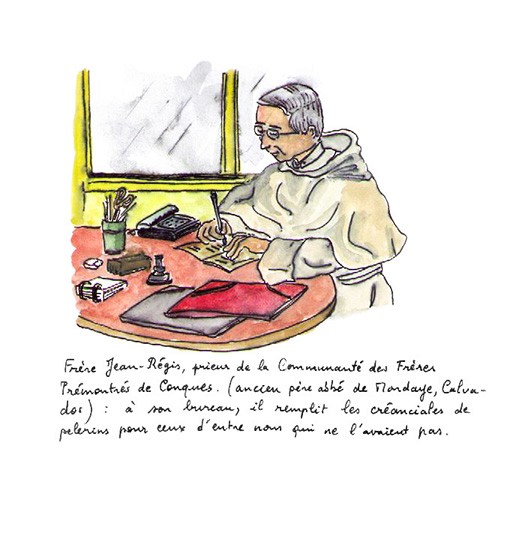 Frère Jean-Régis, prieur de la Communauté des Frères
Prémontrés de Conques. (ancien père abbé de Mondaye, Calva-
dos) : à son bureau, il remplit les créanciales de
pelerins pour ceux d'entre nous qui ne l'avaient pas.